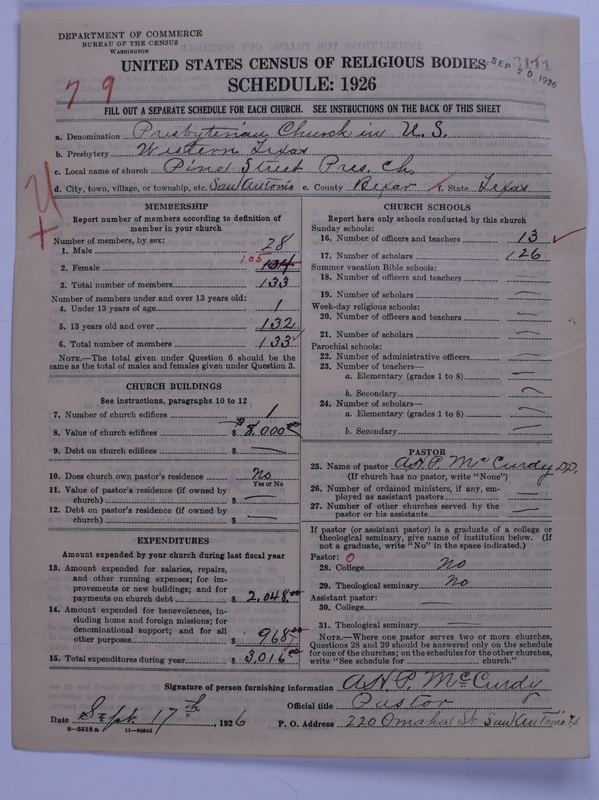 DEPARTMENT OF COMMERCE
BUREAU OF THE CENSUS
WASHINGTON
SEP 20, 1926
UNITED STATES CENSUS OF RELIGIOUS BODIES
SCHEDULE: 1926
7 9
FILL OUT A SEPARATE SCHEDULE FOR EACH CHURCH. SEE INSTRUCTIONS ON THE BACK OF THIS SHEET
a. Denomination Presbyterian Church in U. S.
b. Presbytery Western Texas
c. Local name of church Pine Street Pres. Ch.
d. City, town, village, or township, etc. San Antonio e. County Bexar f. State Texas
MEMBERSHIP
Report number of members according to definition of
member in your church
Number of members, by sex:
1. Male 28
2. Female 105 104
3. Total number of members 133
Number of members under and over 13 years old:
4. Under 13 years of age 1
5. 13 years old and over 132
6. Total number of members 133
NOTE.—The total given under Question 6 should be
same as the total of males and females given under Question 3.
CHURCH BUILDINGS
See instructions, paragraphs 10 to 12
7. Number of church edifices 1
8. Value of church edifices $ 8,000
9. Debt on church edifices $ —
10. Does church own pastor's residence? No
Yes or No
11. Value of pastor's residence (if owned by
church) $ —
12. Debt on pastor's residence (if owned by
church) $ —
EXPENDITURES
Amount expended by your church during last fiscal year
13. Amount expended for salaries, repairs,
and other running expenses; for im-
provements or new buildings; and for
payments on church debt $ 2,048.00
14. Amount expended for benevolences, in-
cluding home and foreign missions; for
denominational support; and for all
other purposes $ 968.00
15. Total expenditures during year $ 3,016.00
CHURCH SCHOOLS
Report here only schools conducted by this church
Sunday schools:
16. Number of officers and teachers 13
17. Number of scholars 126
Summer vacation Bible schools:
18. Number of officers and teachers —
19. Number of scholars —
Week-day religious schools:
20. Number of officers and teachers —
21. Number of scholars —
Parochial schools:
22. Number of administrative officers —
23. Number of teachers—
a. Elementary (grades 1 to 8) —
b. Secondary —
24. Number of scholars—
a. Elementary (grades 1 to 8) —
b. Secondary —
PASTOR
25. Name of pastor A.H.P. McCurdy D.D.
(If church has no pastor, write "None")
26. Number of ordained ministers, if any, em-
ployed as assistant pastors —
27. Number of other churches served by the
pastor or his assistants —
If pastor (or assistant pastor) is a graduate of a college or
theological seminary, give name of institution below. (If
not a graduate, write "No" in the space indicated.)
Pastor: 0
28. College No
29. Theological seminary No
Assistant pastor:
30. College —
31. Theological seminary —
NOTE.—Where one pastor serves two or more churches,
Questions 28 and 29 should be answered only on the schedule
for one of the churches; on the schedules for the other churches,
write "See schedule for church."
Signature of person furnishing information A.H.P. McCurdy
Official title Pastor
Date Sept. 17th, 1926 P. O. Address 220 Omaha St. San Antonio Tx
8—5518 a